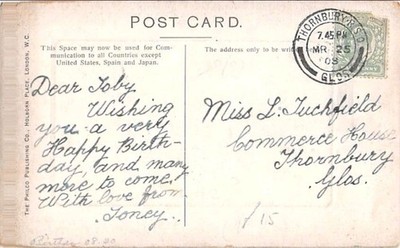 POST CARD.
This Space may now be used for Com-
munication to all Countries except
United States, Spain and Japan.
The address only to be
THORNBURY R.S.O
7.45 PM
MR 25
08
GLOS
Dear Toby
Wishing
you a very
Happy Birth-
day, and many
more to come.
With love from
Toney.
Miss L. Tuchfield
Commerce House
Thornbury
Glos.
£15
THE PHILCO PUBLISHING CO., HOLBORN PLACE, LONDON, W.C.